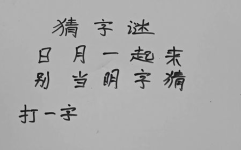 猜字谜
日月一起来
别当明字猜
打一字